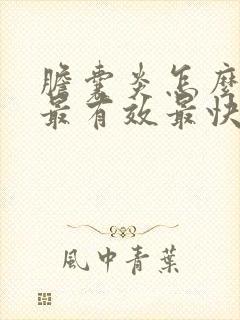 膽囊炎怎麼
最有效最快
風中青葉